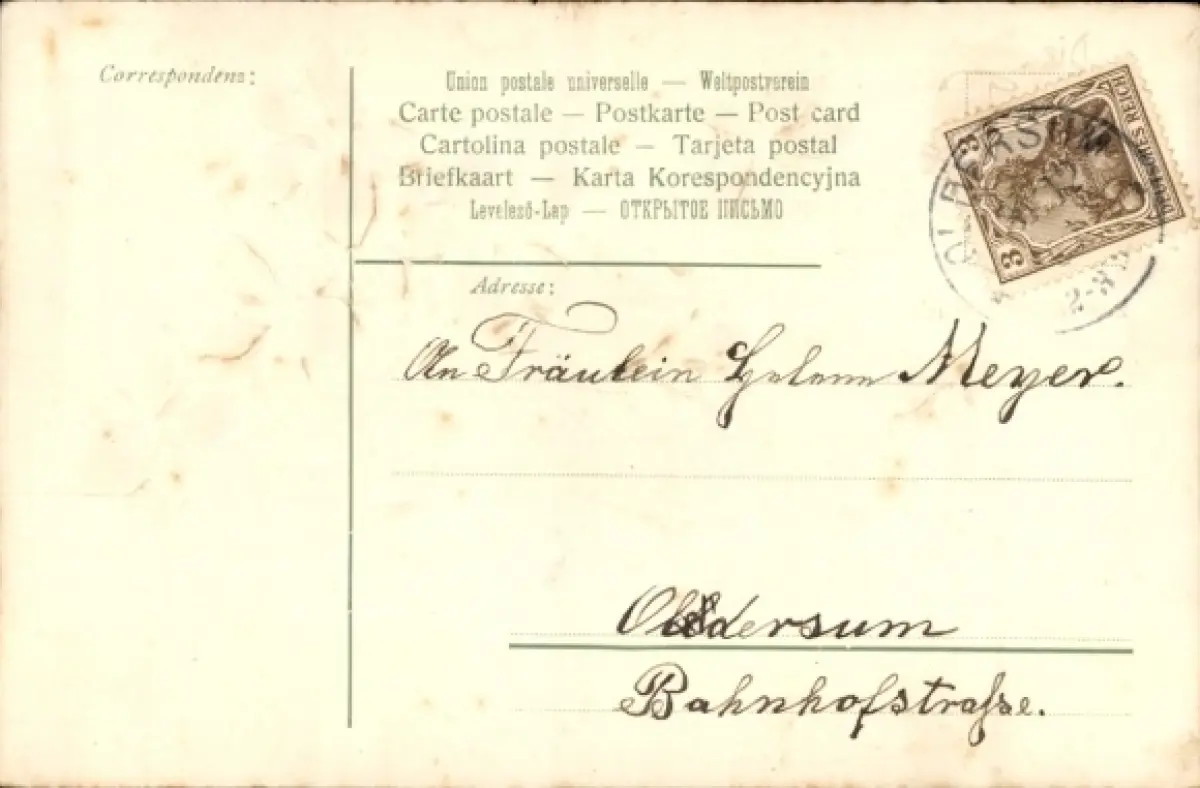 Correspondenz:
Union postale universelle — Weltpostverein
Carte postale — Postkarte — Post card
Cartolina postale — Tarjeta postal
Briefkaart — Karta Korespondencyjna
Levelező-Lap — ОТКРЫТОЕ ПИСЬМО
DEUTSCHES REICH
3 3
2-3N
Adresse:
An Fräulein Helene Meyer.
Oldersum
Bahnhofstraße.